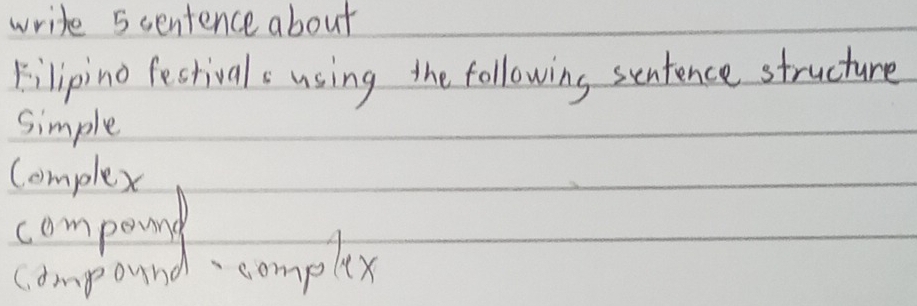 write 5 sentence about
Filipino festivals using the following sentence structure
Simple
Complex
compound
compound - complex